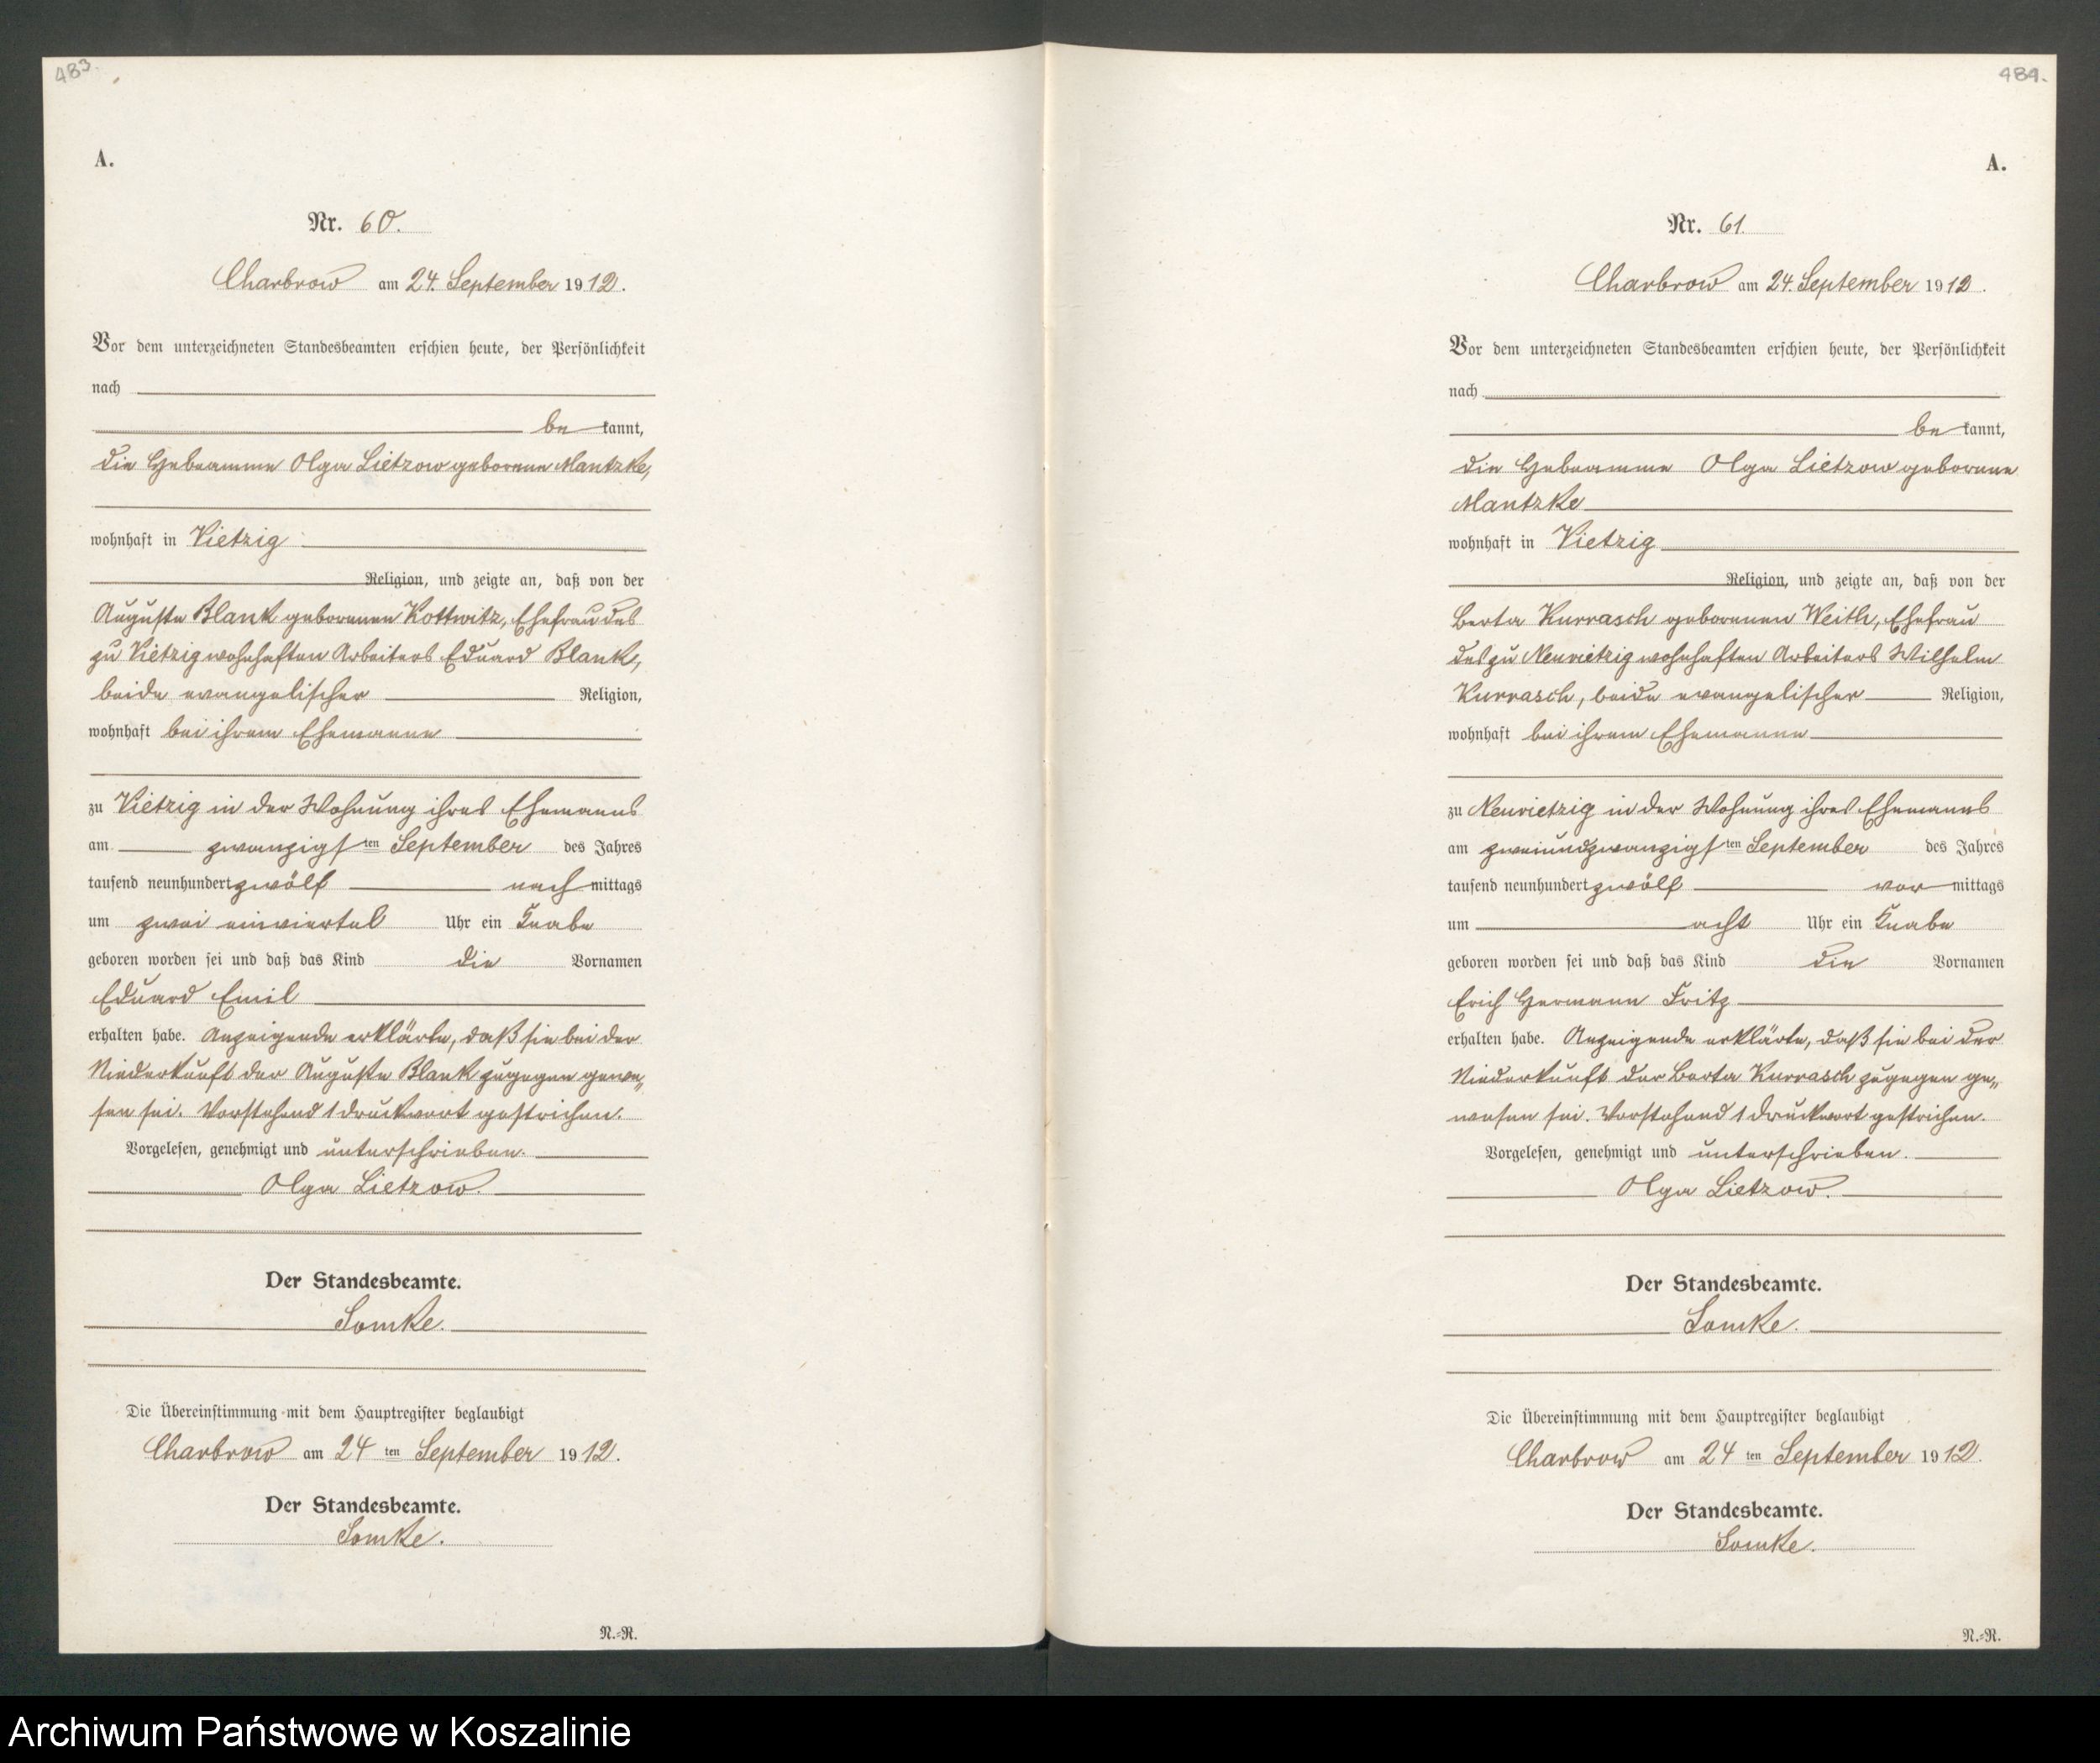 483.
A.
Nr. 60.
Charbrow am 24. September 1912.
Vor dem unterzeichneten Standesbeamten erschien heute, der Persönlichkeit
nach
be kannt,
die Hebeamme Olga Lietzow geborene Mantzke,
wohnhaft in Vietzig
Religion, und zeigte an, daß von der
Auguste Blank geborenen Kottwitz, Ehefrau des
zu Vietzig wohnhaften Arbeiters Eduard Blank,
beide evangelischer Religion,
wohnhaft bei ihrem Ehemanne
zu Vietzig in der Wohnung ihres Ehemanns
am zwanzigsten September des Jahres
tausend neunhundert zwölf nach mittags
um zwei einviertel Uhr ein Knabe
geboren worden sei und daß das Kind die Vornamen
Eduard Emil
erhalten habe. Anzeigende erklärte, daß sie bei der
Niederkunft der Auguste Blank zugegen gewe„
sen sei. Vorstehend 1 Druckwort gestrichen.
Vorgelesen, genehmigt und unterschrieben.
Olga Lietzow.
Der Standesbeamte.
Somke.
Die Übereinstimmung mit dem Hauptregister beglaubigt
Charbrow am 24 ten September 1912.
Der Standesbeamte.
Somke.
N.=R.
484.
A.
Nr. 61.
Charbrow am 24. September 1912.
Vor dem unterzeichneten Standesbeamten erschien heute, der Persönlichkeit
nach
be kannt,
die Hebeamme Olga Lietzow geborene
Mantzke
wohnhaft in Vietzig
Religion, und zeigte an, daß von der
Berta Kurrasch geborenen Weith, Ehefrau
des zu Neuvietzig wohnhaften Arbeiters Wilhelm
Kurrasch, beide evangelischer Religion,
wohnhaft bei ihrem Ehemanne
zu Neuvietzig in der Wohnung ihres Ehemanns
am zweiundzwanzigsten September des Jahres
tausend neunhundert zwölf vor mittags
um acht Uhr ein Knabe
geboren worden sei und daß das Kind die Vornamen
Erich Hermann Fritz
erhalten habe. Anzeigende erklärte, daß sie bei der
Niederkunft der Berta Kurrasch zugegen ge„
wesen sei. Vorstehend 1 Druckwort gestrichen.
Vorgelesen, genehmigt und unterschrieben.
Olga Lietzow.
Der Standesbeamte.
Somke.
Die Übereinstimmung mit dem Hauptregister beglaubigt
Charbrow am 24 ten September 1912.
Der Standesbeamte.
Somke.
N.=R.
Archiwum Państwowe w Koszalinie